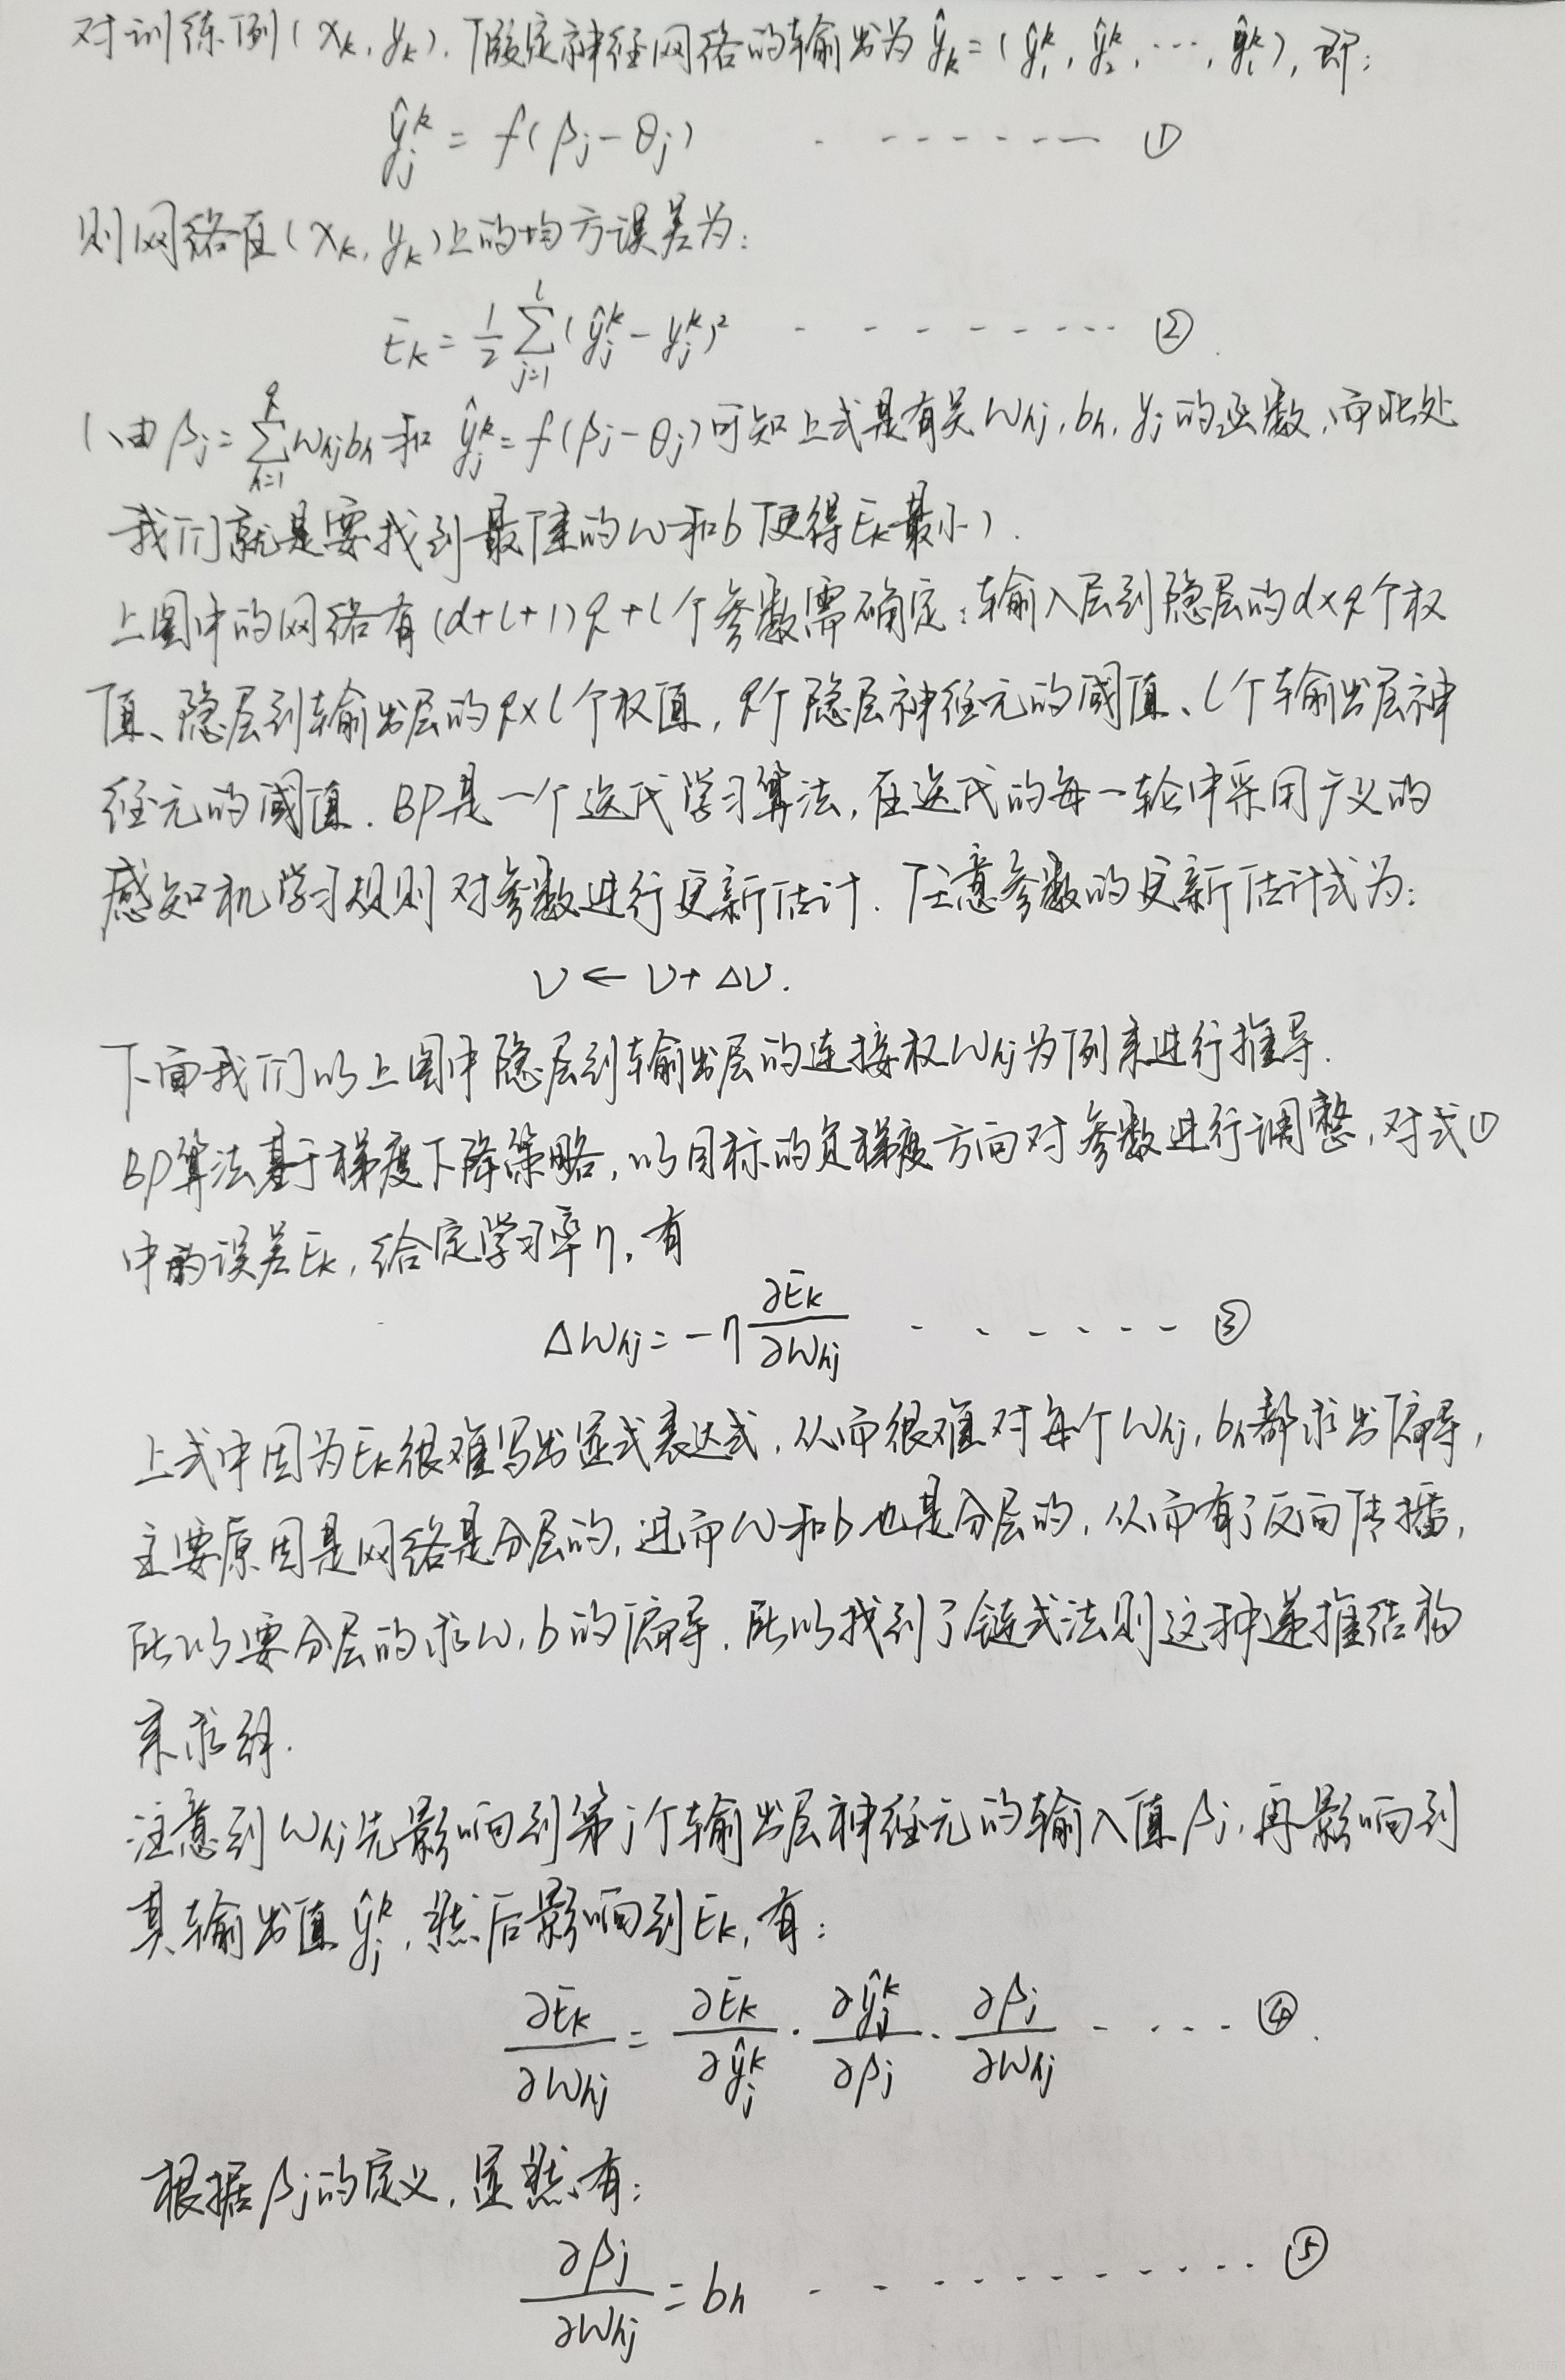 对训练例(xₖ, yₖ). 假定神经网络的输出为 ŷₖ = (ŷ₁ᵏ, ŷ₂ᵏ, ···, ŷₗᵏ), 即:
ŷⱼᵏ = f(βⱼ - θⱼ) ------- ①
则网络在(xₖ, yₖ)上的均方误差为:
Eₖ = 1/2 ∑ⱼ₌₁ˡ (ŷⱼᵏ - yⱼᵏ)² -------- ②
(由 βⱼ = ∑ₕ₌₁^q wₕⱼbₕ 和 ŷⱼᵏ = f(βⱼ - θⱼ) 可知上式是有关 wₕⱼ, bₕ, yⱼ 的函数, 而此处
我们就是要找到最佳的w和b使得Eₖ最小).
上图中的网络有 (d+l+1)q+l 个参数需确定: 输入层到隐层的d×q个权
值、隐层到输出层的q×l个权值, q个隐层神经元的阈值、l个输出层神
经元的阈值. BP是一个迭代学习算法, 在迭代的每一轮中采用广义的
感知机学习规则对参数进行更新估计. 任意参数的更新估计式为:
υ ← υ + Δυ.
下面我们以上图中隐层到输出层的连接权wₕⱼ为例来进行推导.
BP算法基于梯度下降策略, 以目标的负梯度方向对参数进行调整, 对式①
中的误差Eₖ, 给定学习率η, 有
Δwₕⱼ = -η ∂Eₖ/∂wₕⱼ ------- ③
上式中因为Eₖ很难写出显式表达式, 从而很难对每个wₕⱼ, bₕ都求出偏导,
主要原因是网络是分层的, 进而w和b也是分层的, 从而有了反向传播,
所以要分层的求w, b的偏导. 所以找到了链式法则这种递推结构
来求解.
注意到wₕⱼ先影响到第j个输出层神经元的输入值βⱼ, 再影响到
其输出值 ŷⱼᵏ, 然后影响到Eₖ, 有:
∂Eₖ/∂wₕⱼ = ∂Eₖ/∂ŷⱼᵏ · ∂ŷⱼᵏ/∂βⱼ · ∂βⱼ/∂wₕⱼ ----- ④
根据βⱼ的定义, 显然有:
∂βⱼ/∂wₕⱼ = bₕ ----------- ⑤